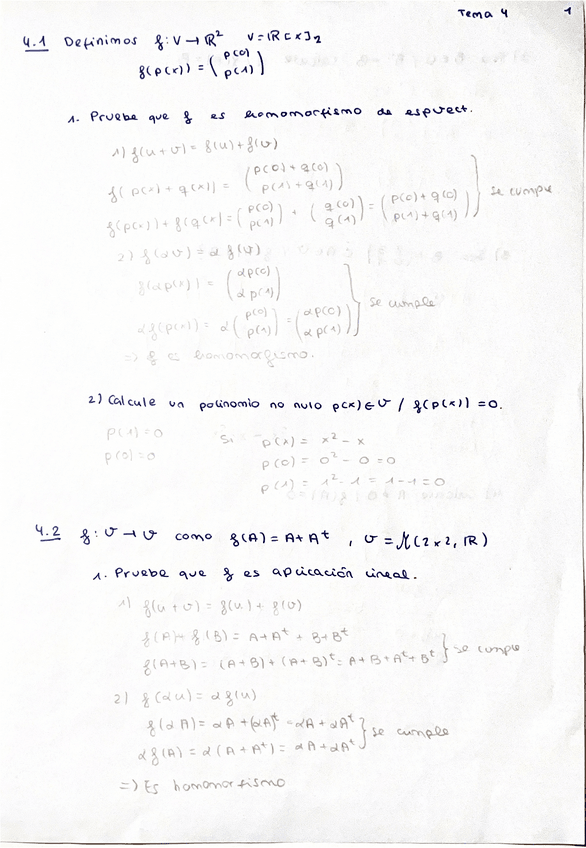 Tema 4 1
4.1 Definimos f: V → ℝ² V = ℝ[x]₂
f(p(x)) = (p(0) p(1))
1. Pruebe que f es homomorfismo de esp vect.
1) f(u+v) = f(u) + f(v)
f(p(x) + q(x)) = (p(0) + q(0) p(1) + q(1))
f(p(x)) + f(q(x)) = (p(0) p(1)) + (q(0) q(1)) = (p(0) + q(0) p(1) + q(1)) } se cumple
2) f(αv) = α f(v)
f(αp(x)) = (αp(0) αp(1))
αf(p(x)) = α(p(0) p(1)) = (αp(0) αp(1)) } se cumple
=> f es homomorfismo.
2) Calcule un polinomio no nulo p(x) ∈ V / f(p(x)) = 0.
p(1) = 0 Si p(x) = x² - x
p(0) = 0 p(0) = 0² - 0 = 0
p(1) = 1² - 1 = 1 - 1 = 0
4.2 f: V → V como f(A) = A + Aᵗ , V = M(2x2, ℝ)
1. Pruebe que f es aplicación lineal.
1) f(u+v) = f(u) + f(v)
f(A) + f(B) = A + Aᵗ + B + Bᵗ
f(A+B) = (A+B) + (A+B)ᵗ = A + B + Aᵗ + Bᵗ } se cumple
2) f(αu) = αf(u)
f(αA) = αA + (αA)ᵗ = αA + αAᵗ
αf(A) = α(A + Aᵗ) = αA + αAᵗ } se cumple
=> Es homomorfismo